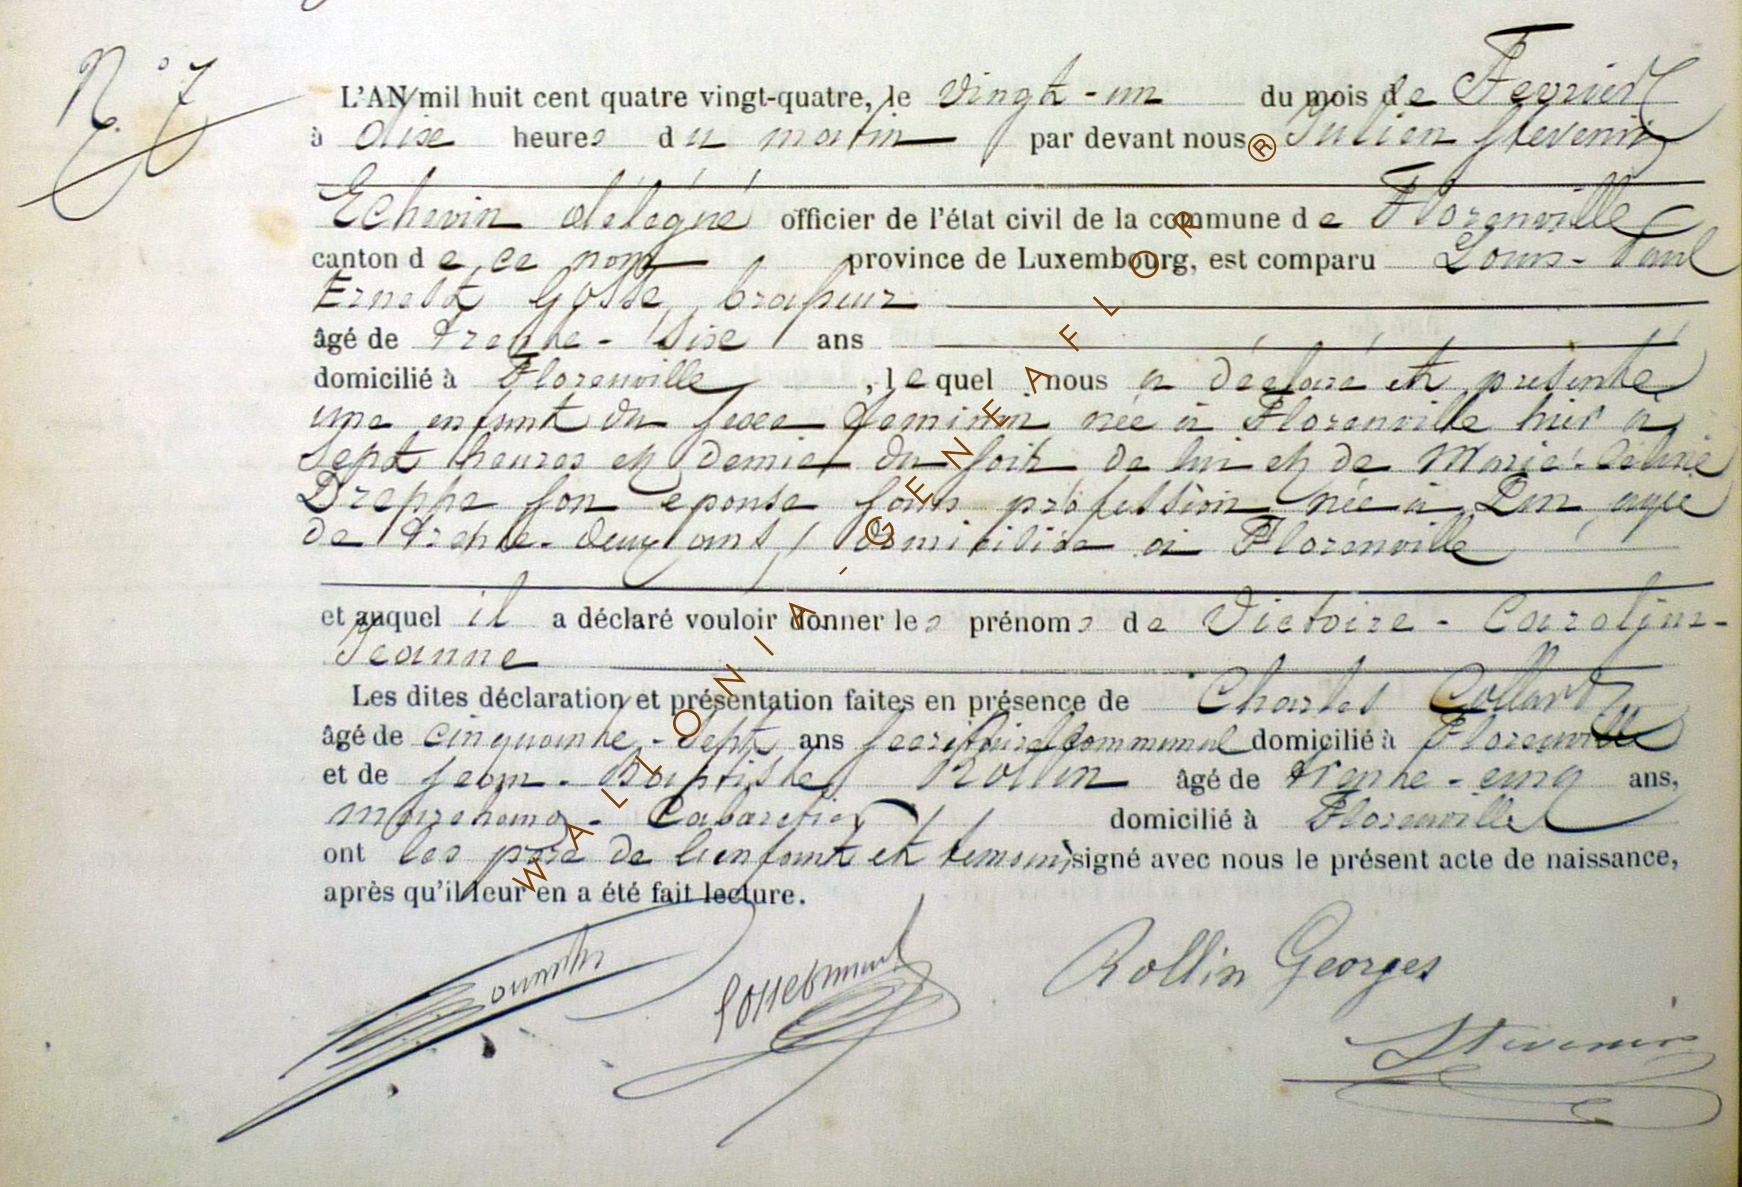 N.° 7
L'AN mil huit cent quatre vingt-quatre, le vingt-un du mois de Fevrier
à dixe heures du matin par devant nous Julien Stevenin
Echevin délégué officier de l'état civil de la commune de Florenville
canton de ce nom province de Luxembourg, est comparu Louis-Paul
Ernest Gosse, braseur
âgé de trente-sixe ans
domicilié à Florenville, lequel nous a déclaré et presenté
une enfant du sexe feminin née à Florenville hier à
Sept heures et demie du soir de lui et de Marie-Céline
Dreppe son epouse sans profession née à Pin agée
de trente-deux ans, domiciliée à Florenville
et auquel il a déclaré vouloir donner les prénoms de Victoire-Caroline-
Jeanne
Les dites déclaration et présentation faites en présence de Charles Collart
âgé de cinquante-Sept ans Secrétaire communal domicilié à Florenville
et de Jean-Baptiste Rollin âgé de trente-cinq ans,
Cabaretier domicilié à Florenville
ont les père de l'enfant et temoins signé avec nous le présent acte de naissance,
après qu'il leur en a été fait lecture.
Rollin Georges
Stevenin
WALLONIA-GENEAFLOR®